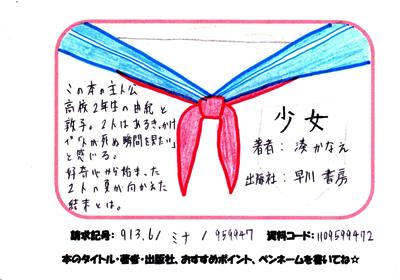 この本の主人公
高校2年生の由紀と
敦子。2人はあるきっかけ
で「人が死ぬ瞬間を見たい」
と感じる。
好奇心から始まった
2人の夏が向かえた
結末とは。
少女
著者：湊かなえ
出版社：早川書房
請求記号：913.6/ミナ/959947 資料コード：1109599472
本のタイトル・著者・出版社、おすすめポイント、ペンネームを書いてね☆